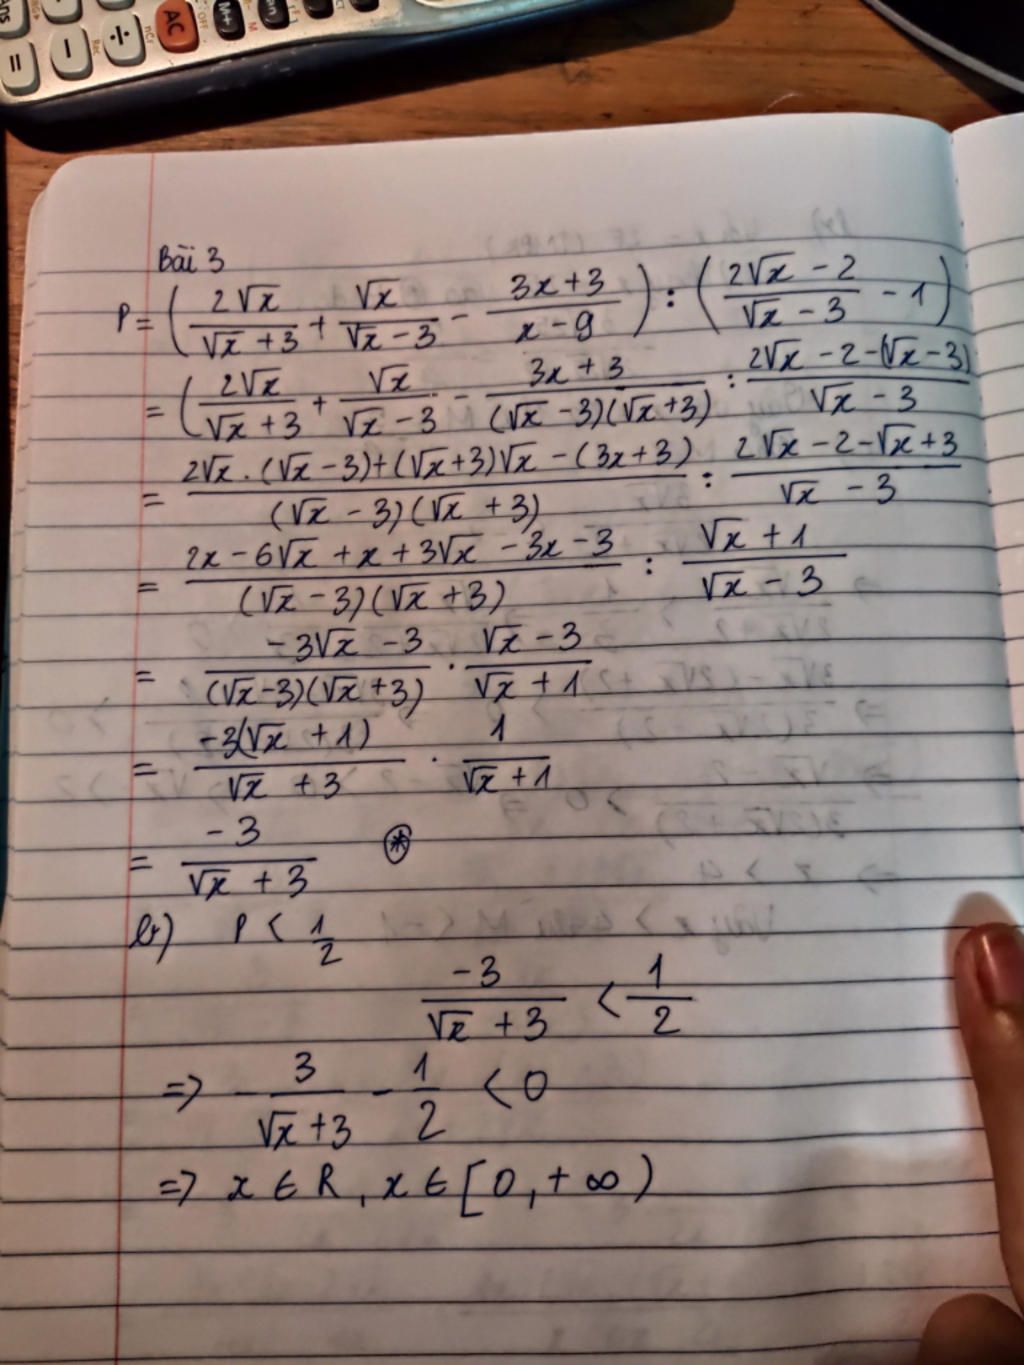 Ans
=
-
÷
AC
OFF
M+
M-
nCr
Bài 3
P = ( 2√x/(√x + 3) + √x/(√x - 3) - (3x + 3)/(x - 9) ) : ( (2√x - 2)/(√x - 3) - 1 )
= ( 2√x/(√x + 3) + √x/(√x - 3) - (3x + 3)/((√x - 3)(√x + 3)) : (2√x - 2 - (√x - 3))/(√x - 3)
= (2√x . (√x - 3) + (√x + 3)√x - (3x + 3))/((√x - 3)(√x + 3)) : (2√x - 2 - √x + 3)/(√x - 3)
= (2x - 6√x + x + 3√x - 3x - 3)/((√x - 3)(√x + 3)) : (√x + 1)/(√x - 3)
= (-3√x - 3)/((√x - 3)(√x + 3)) . (√x - 3)/(√x + 1)
= (-3(√x + 1))/(√x + 3) . 1/(√x + 1)
= -3/(√x + 3) ⊛
b) P < 1/2
-3/(√x + 3) < 1/2
=> - 3/(√x + 3) - 1/2 < 0
=> x ∈ R, x ∈ [0, +∞)